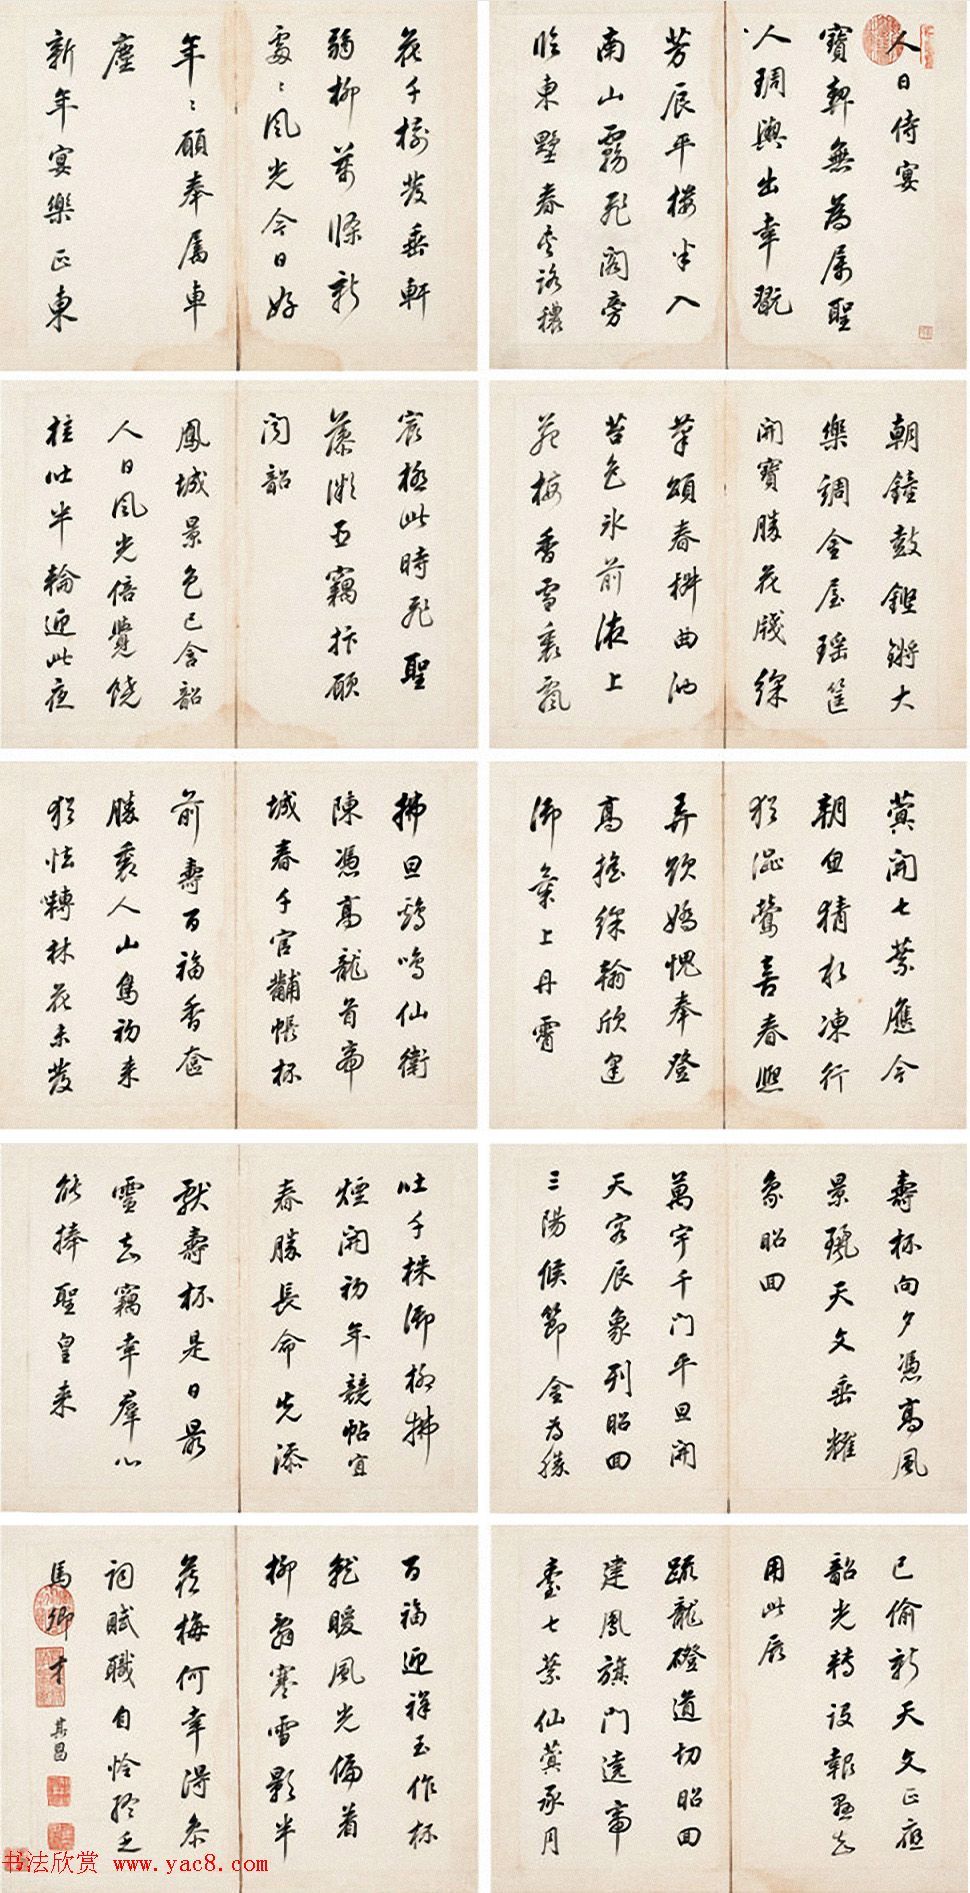 人日侍宴
寶契無為屬聖
人琱輿出幸翫
芳辰平樓半入
南山霧飛閣旁
臨東墅春夾路穠
花千樹發垂軒
弱柳萬條新
處〻風光今日好
年〻願奉屬車
塵
新年宴樂正東
朝鐘鼓鏗鏘大
樂調金屋瑤筐
開寶勝花牋綵
筆頌春椒曲池
苔色冰前液上
苑梅香雪裏飄
宸極此時飛聖
藻微臣竊抃願
聞韶
鳳城景色已含韶
人日風光倍覺饒
桂吐半輪迎此夜
蓂開七葉應今
朝魚猜水凍行
猶澀鶯喜春熙
弄欲嬌愧奉登
高搖綵翰欣逢
御氣上丹霄
拂旦雞鳴仙衛
陳憑高龍首帝
城春千官黼帳杯
前壽百福香奩
勝裏人山鳥初来
猶怯囀林花未發
吐千株御柳拂
煙開初年競帖宜
春勝長命先添
獻壽杯是日最
靈知竊幸群心
能捧聖皇来
壽杯向夕憑高風
景麗天文垂耀
象昭回
萬宇千門平旦開
天容辰象列昭回
三陽候節金為勝
百福迎祥玉作杯
就暖風光偏着
柳辭寒雪影半
藏梅何幸得參
詞賦職自憐終乏
馬卿才
其昌
已偷新天文正應
韶光轉設報懸知
用此辰
疏龍磴道切昭回
建鳳旗門遶帝
臺七葉仙蓂承月
书法欣赏 www.yac8.com